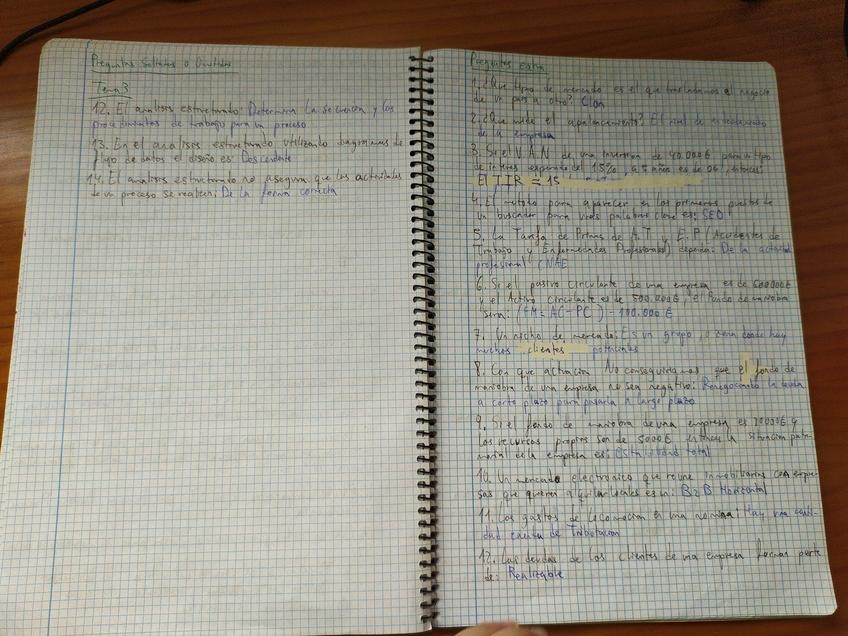 Preguntas Saltadas o Dudadas
Tema 3
12. El analisis estructurado: Determina la secuencia y los
procedimientos de trabajo para un proceso
13. En el analisis estructurado utilizando diagramas de
flujo de datos el diseño es: Descendente
14. El analisis estructurado no asegura que las actividades
de un proceso se realicen: De la forma correcta
Preguntas extra
1. ¿Que tipo de mercado es el que trasladamos al negocio
de un pais a otro? Clon
2. ¿Que mide el apalancamiento? El nivel de endeudamiento
de la empresa
3. Si el V.A.N de una inversion de 40.000€ para un tipo
de interes esperado del 15%, a 5 años es de 0€, entonces:
El TIR = 15
4. El metodo para aparecer en los primeros puestos de
un buscador para unas palabras clave es: SEO
5. La Tarifa de Primas de A.T y E.P (Accidentes de
Trabajo y Enfermedades Profesionales) depende: De la actividad
profesional CNAE
6. Si el pasivo circulante de una empresa es de 600000€
y el Activo circulante es de 500.000€, el fondo de maniobra
sera: (FM = AC-PC) -100.000€
7. Un nicho de mercado: Es un grupo, o zona donde hay
muchos clientes potenciales
8. Con que actuacion No conseguiriamos que el fondo de
maniobra de una empresa no sea negativo: Renegociando la deuda
a corto plazo para pasarla a largo plazo
9. Si el fondo de maniobra de una empresa es y
los recursos propios son de 5000€ entonces la situacion patri-
monial de la empresa es: estabilidad total
10. Un mercado electronico que reune inmobiliarias con empre-
sas que quieren alquilar locales es un: B2B Horizontal
11. Los gastos de locomocion en una nomina: Hay una canti-
dad exenta de Tributacion
12. Las deudas de los clientes de una empresa forman parte
de: Realizable